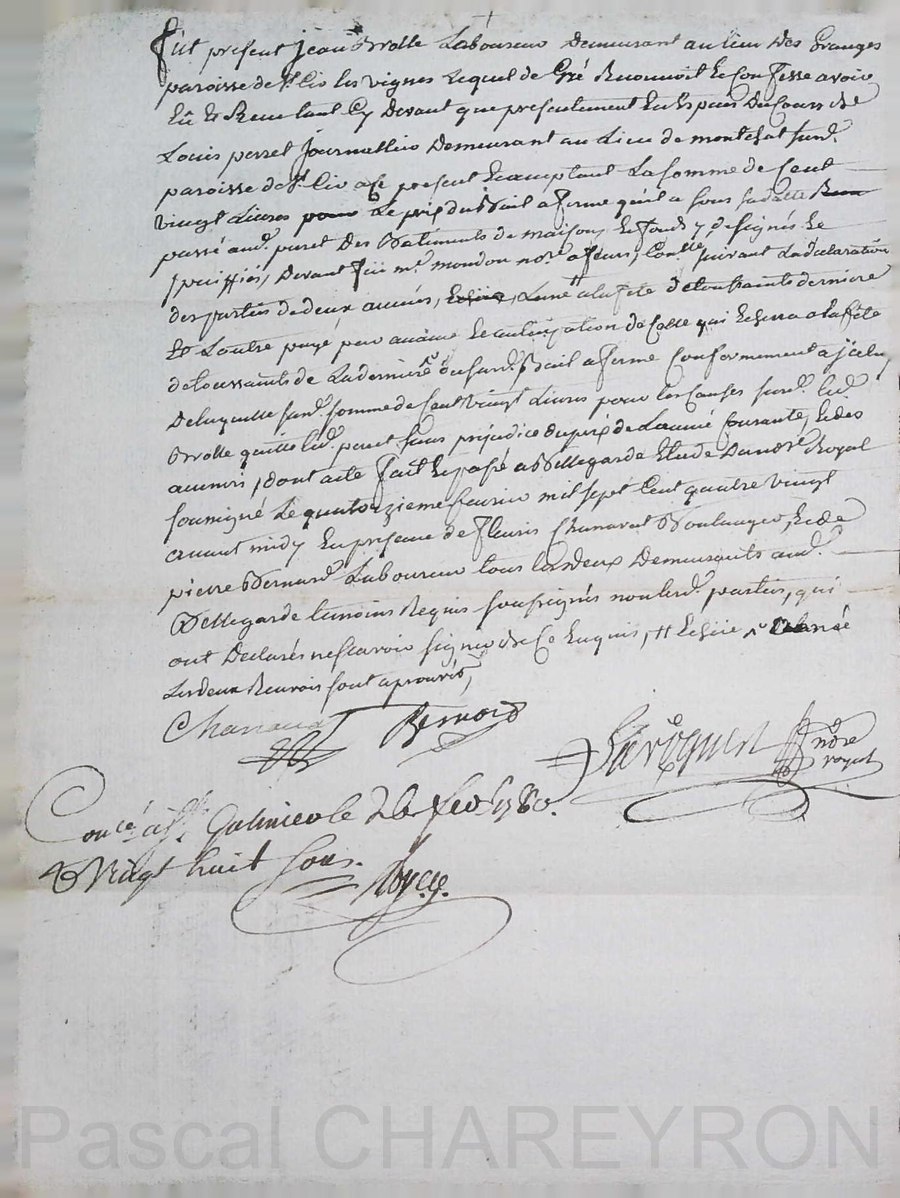 fut present jean Brolle Laboureur Demeurant au lieu Des Granges
paroisse de st Cir les vignes Lequel de Gré Reconnoit et Confesse avoir
Eû et Receu tant Cy devant que presentement En Espèces Du Cours de
Louis perret journallier Demeurant au Lieu de montchat susd.
paroisse de st Cir a Ce present Acceptant La Somme de Cent
vingt Livres Le prix du Bail a ferme qu'il a sous sa datte
passé aud. perret Des Batiments de maison, et fonds y designés et
spécifiés, Devant me. mondon nore. a feurs, suivant La declaration
des parties de deux années, L'une a la fête de toussaints derniere
Et L'autre payé par avance de Celle qui Echerra a la fête
de toussaints de La derniere dud. Bail a ferme Conformement a jcelui
De laquelle susd. somme de Cent vingt Livres pour les Causes susd. led.
Brolle quitte led. perret sans prejudice du prix de L'année Courante, et des
avenir, dont acte fait et passé a Bellegarde Etude Du nore Royal
soussigné Le quatorzieme fevrier mil sept Cent quatre vingt
avant midy En presence de fleuris Chanavat Boulanger, et de
pierre Bernard Laboureur tous Les deux Demeurants aud.
Bellegarde temoins Requis soussignés non lesd. parties, qui
ont Declarés ne sçavoir signer de Ce Enquis,
Les deux Renvois sont aprouvés,
Chanavat Bernard
nore
royal
Conlé a st Galmier le 26 fevr 1780.
R Vingt huit sous.
Pascal CHAREYRON